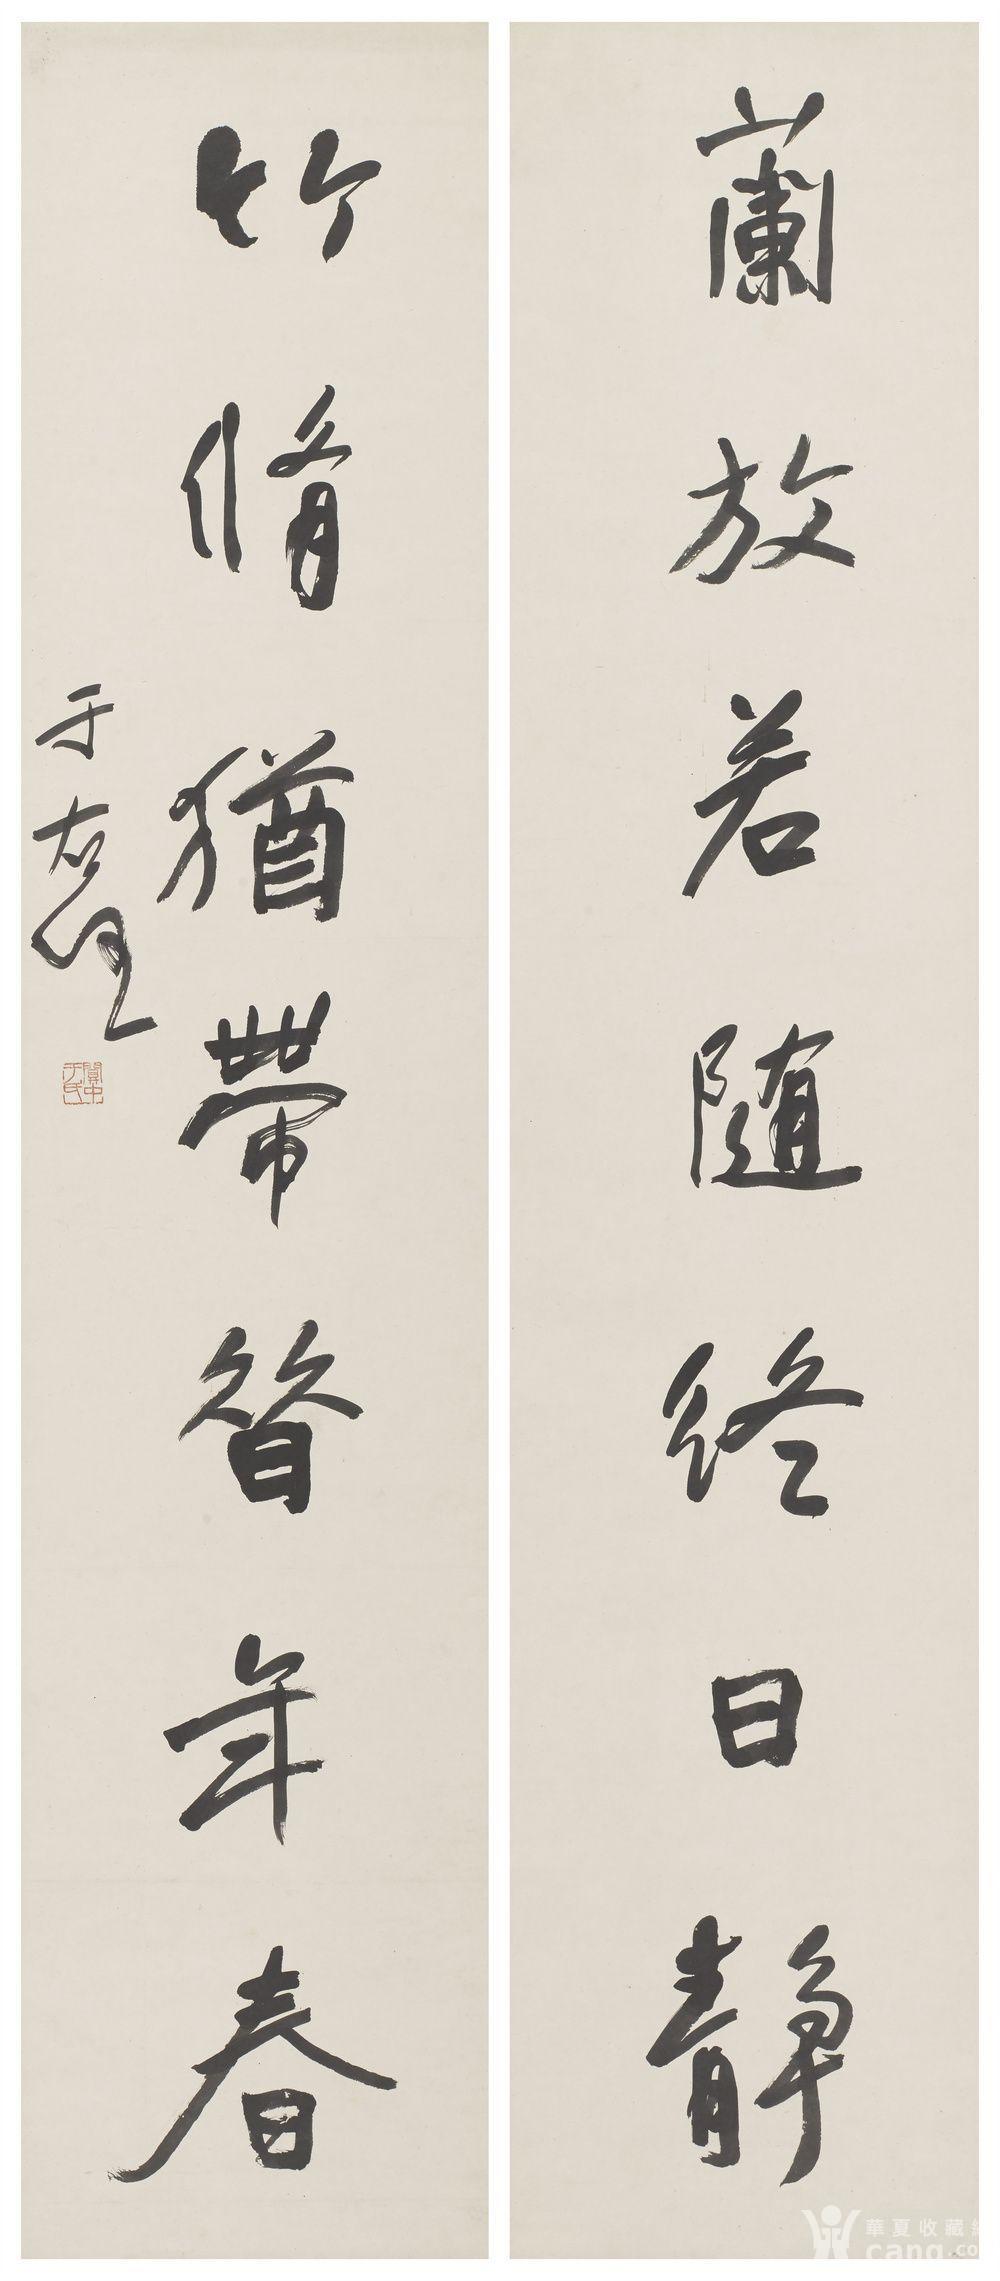 蘭放若随終日靜
竹脩猶帶昔年春
于右任
關中于氏
華夏收藏
cang.co